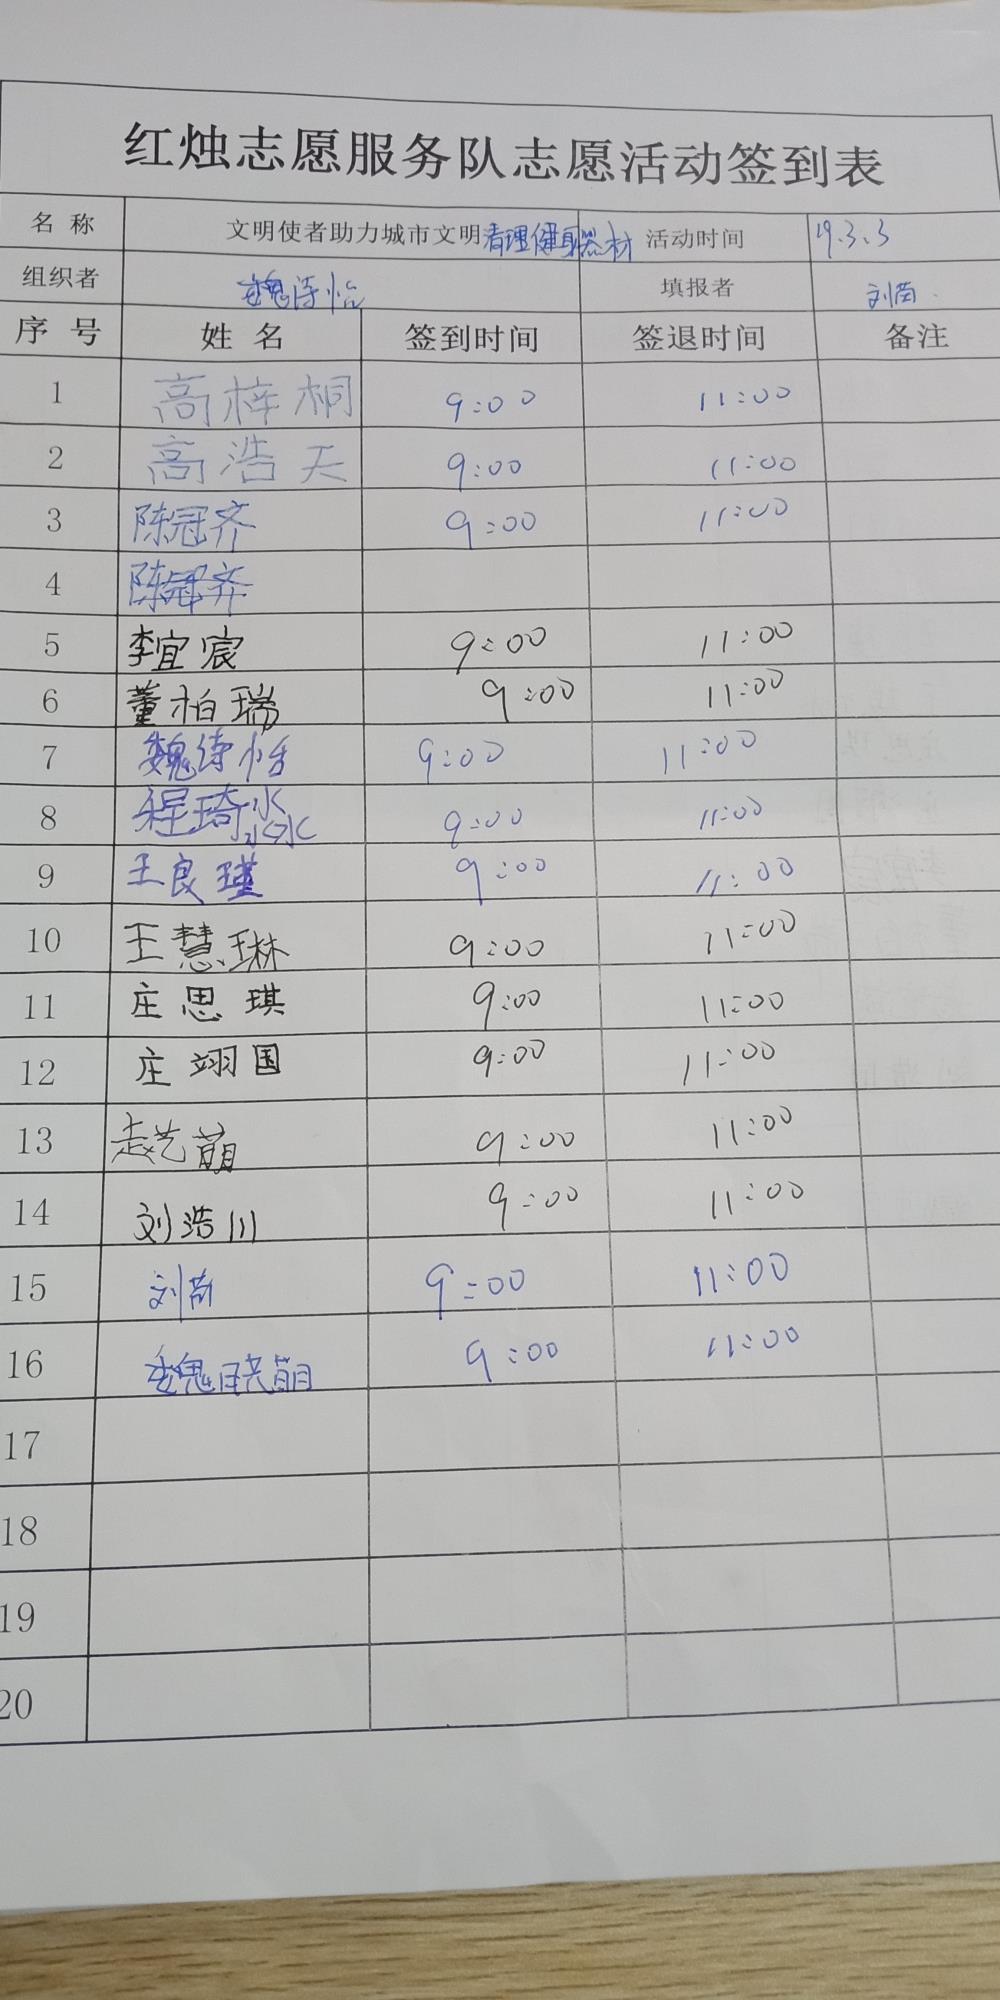 红烛志愿服务队志愿活动签到表
名 称 文明使者助力城市文明清理健身器材 活动时间 19.3.3
组织者 魏诗怡 填报者 刘茵
序 号 姓 名 签到时间 签退时间 备注
1 高梓桐 9:00 11:00
2 高浩天 9:00 11:00
3 陈冠齐 9:00 11:00
4 陈冠齐
5 李宜宸 9:00 11:00
6 董柏瑞 9:00 11:00
7 魏诗怡 9:00 11:00
8 程琦淼 9:00 11:00
9 王良瑾 9:00 11:00
10 王慧琳 9:00 11:00
11 庄思琪 9:00 11:00
12 庄翊国 9:00 11:00
13 赵艺萌 9:00 11:00
14 刘浩川 9:00 11:00
15 刘茵 9:00 11:00
16 魏晓萌 9:00 11:00
17
18
19
20